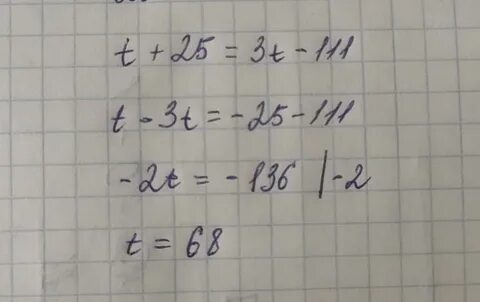 t + 25 = 3t - 111
t - 3t = -25 - 111
-2t = -136 | -2
t = 68